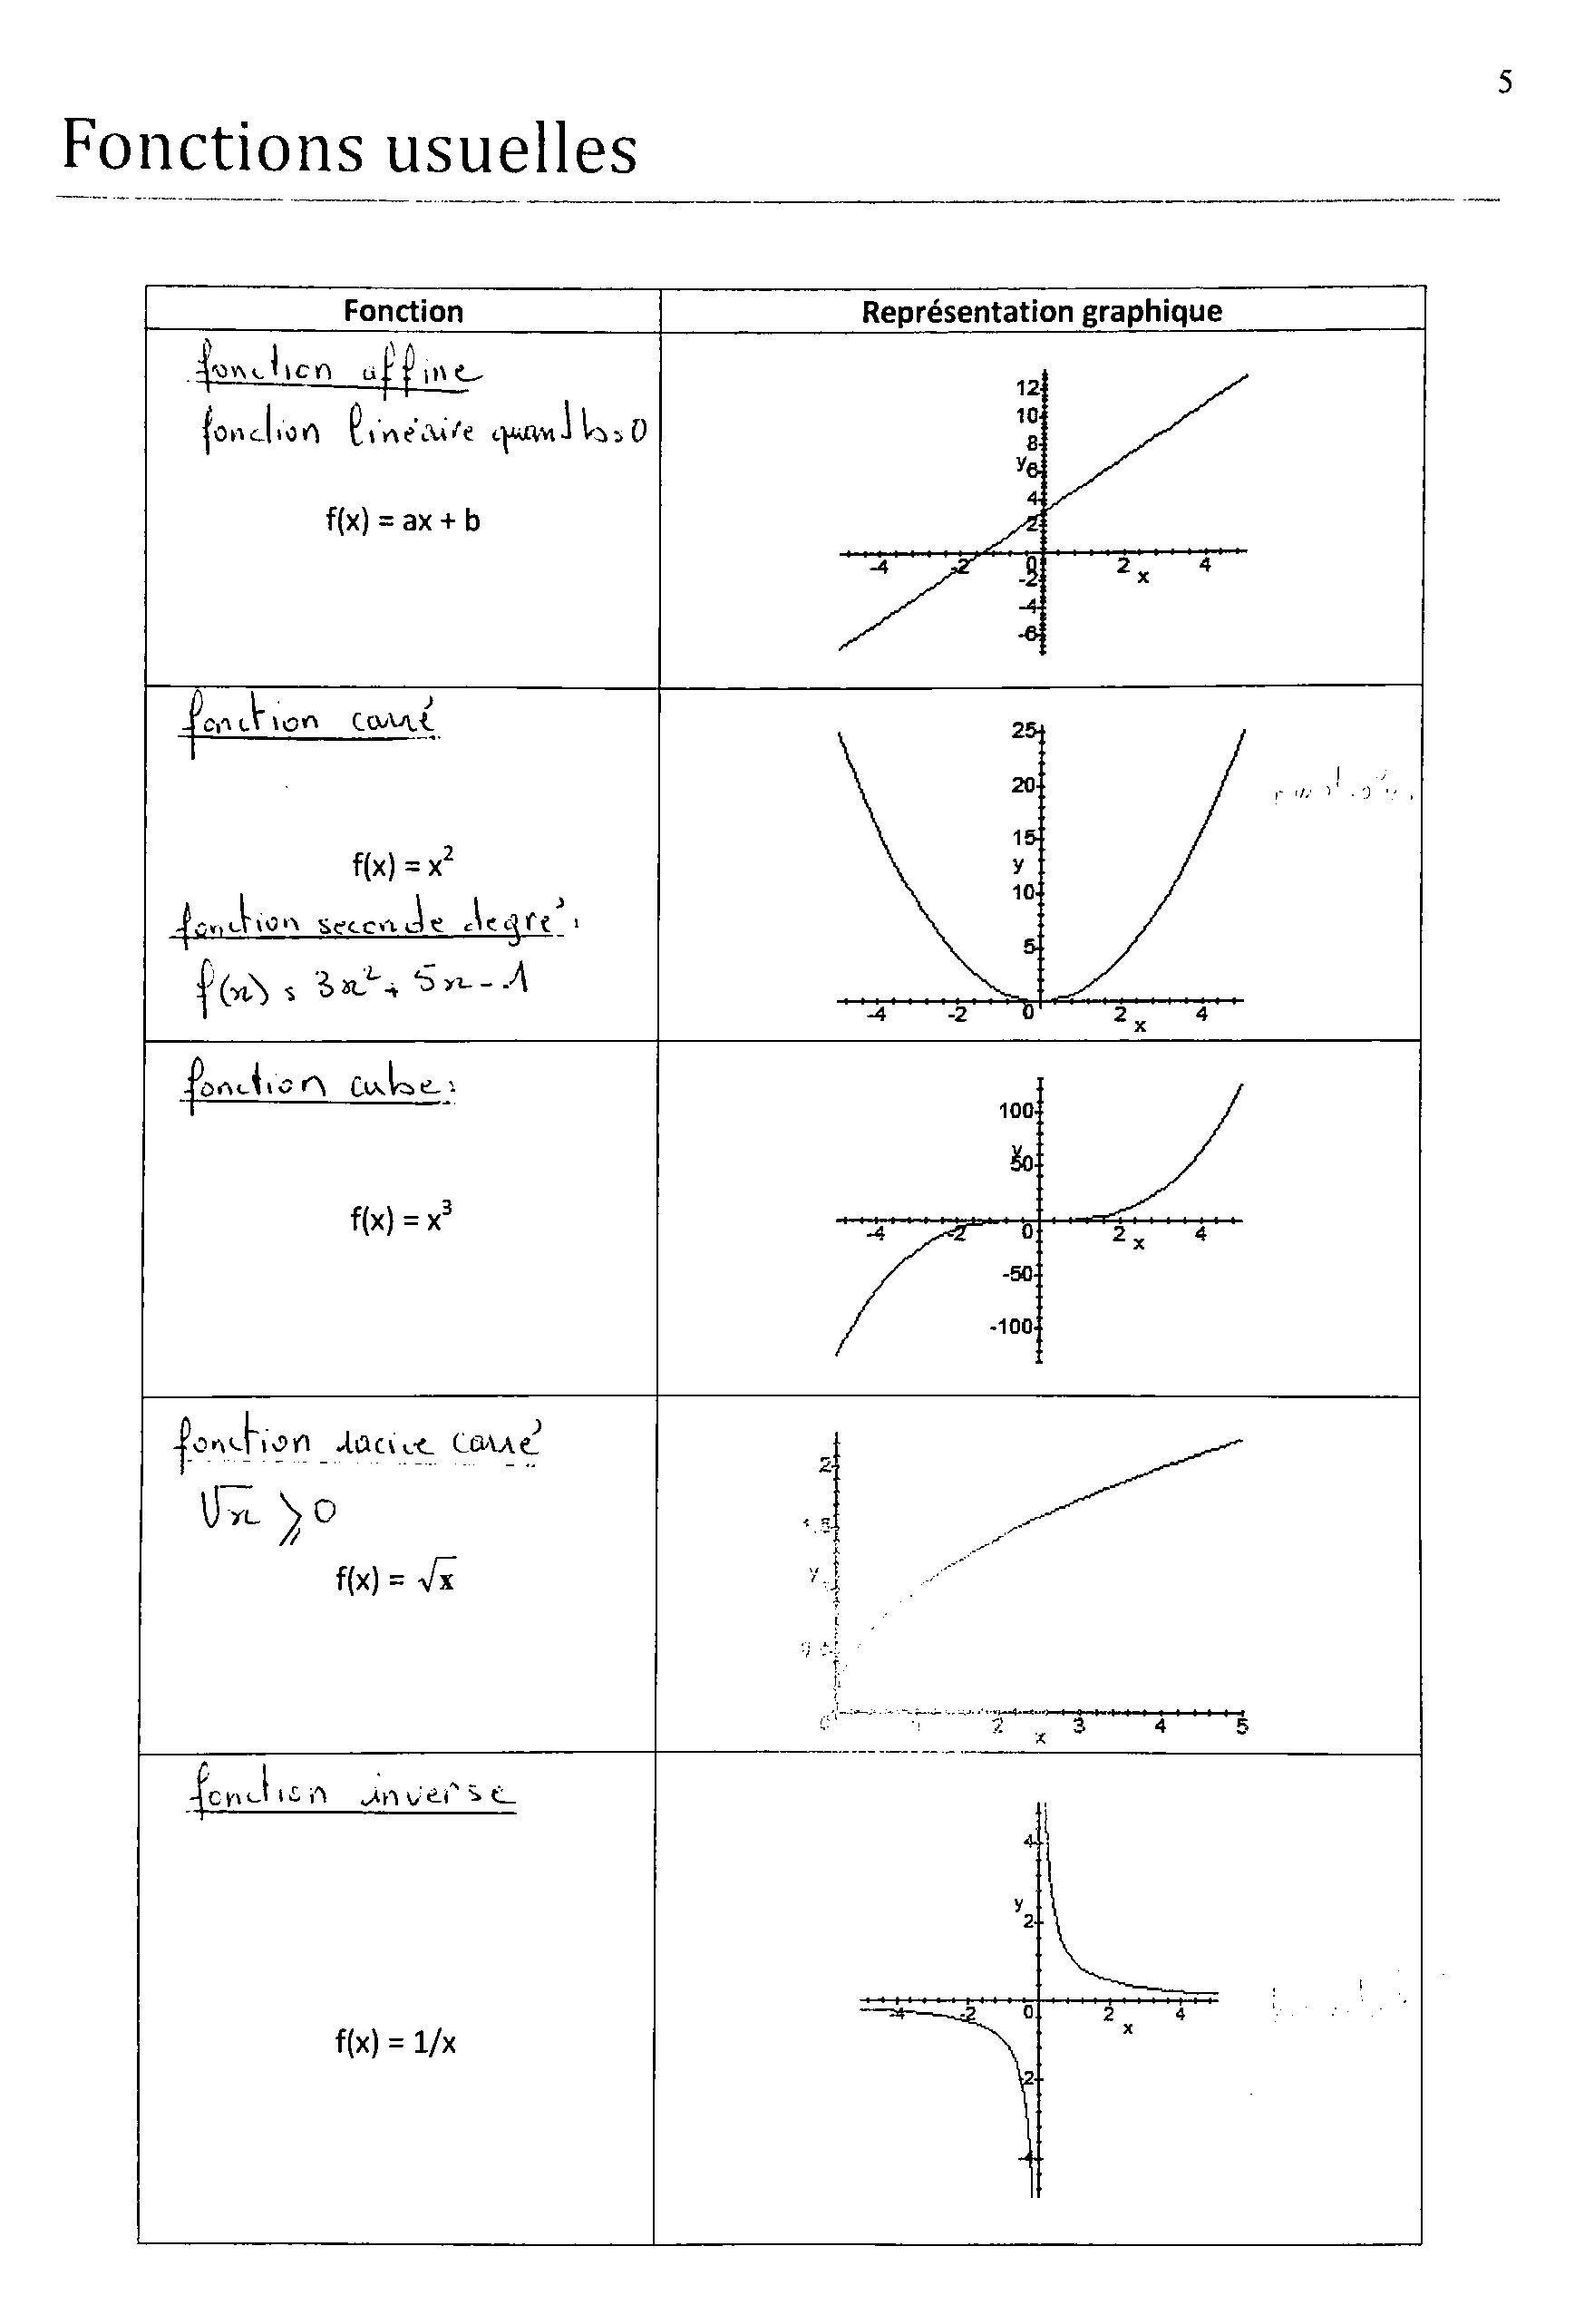 5
Fonctions usuelles
Fonction
Représentation graphique
fonction affine
fonction linéaire quand b=0
f(x) = ax + b
12
10
8
y
6
4
2
0
-2
-4
-6
-4
-2
2
x
4
fonction carré
f(x) = x²
fonction seconde degré :
f(x) = 3x² + 5x - 1
25
20
15
y
10
5
-4
-2
0
2
x
4
fonction cube :
f(x) = x³
100
y
50
-4
-2
0
2
x
4
-50
-100
fonction racine carré
√x ⩾ 0
f(x) = √x
2
y
2
x
3
4
5
fonction inverse
f(x) = 1/x
4
y
2
-4
-2
0
2
x
4
-2
-4